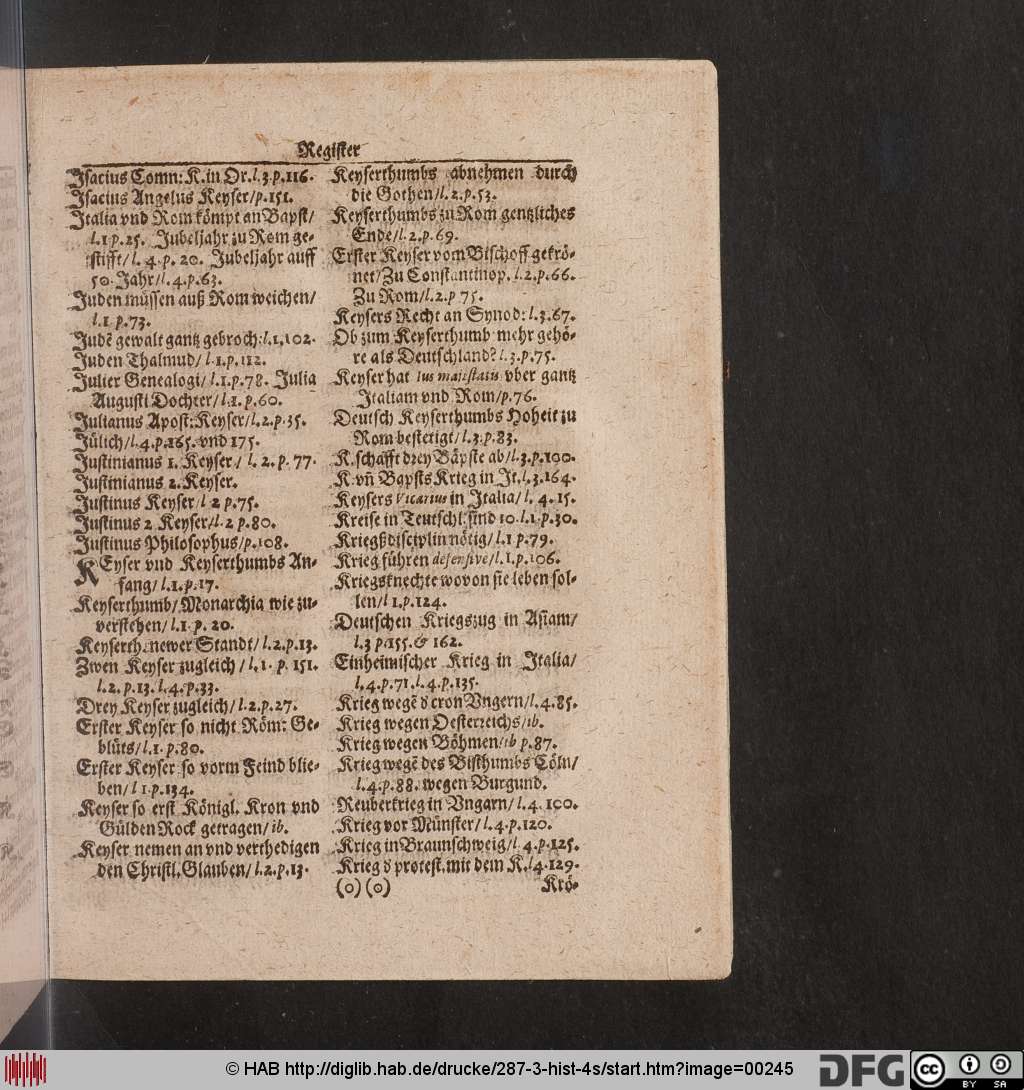 Register
Isacius Comn: K. in Or. l.3.p.116.
Isacius Angelus Keyser/p.151.
Italia vnd Rom kömpt an Bapst/
l.1 p.25. Jubeljahr zu Rom ge-
stifft/l.4.p.20. Jubeljahr auff
50. Jahr/l.4.p.63.
Juden müssen auß Rom weichen/
l.1 p.73.
Judē gewalt gantz gebroch: l.1,102.
Juden Thalmud/l.1.p.112.
Julier Genealogi/l.1.p.78. Julia
Augusti Dochter/l.1.p.60.
Julianus Apost: Keyser/l.2.p.35.
Jülich/l.4.p.165. vnd 175.
Justinianus 1. Keyser/l.2.p.77.
Justinianus 2. Keyser.
Justinus Keyser l 2 p.75.
Justinus 2 Keyser/l.2 p.80.
Justinus Philosophus/p.108.
KEyser vnd Keyserthumbs An-
fang/l.1.p.17.
Keyserthumb/Monarchia wie zu-
verstehen/l.1.p.20.
Keyserth. newer Standt/l.2.p.13.
Zwen Keyser zugleich/l.1.p.151.
l.2.p.13. l.4.p.33.
Drey Keyser zugleich/l.2.p.27.
Erster Keyser so nicht Röm: Ge-
blüts/l.1.p.80.
Erster Keyser so vorm Feind blie-
ben/l 1.p.134.
Keyser so erst Königl. Kron vnd
Gülden Rock getragen/ib.
Keyser nemen an vnd verthedigen
den Christl. Glauben/l.2.p.13.
Keyserthumbs abnehmen durch
die Gothen/l.2.p.53.
Keyserthumbs zu Rom gentzliches
Ende/l.2.p.69.
Erster Keyser vom Bischoff gekrö-
net/Zu Constantinop. l.2.p.66.
Zu Rom/l.2.p 75.
Keysers Recht an Synod: l.3.67.
Ob zum Keyserthumb mehr gehö-
re als Deutschland? l.3.p.75.
Keyser hat Ius maiestatis vber gantz
Italiam vnd Rom/p.76.
Deutsch Keyserthumbs Hoheit zu
Rom bestetigt/l.3.p.83.
K. schafft drey Bäpste ab/l.3.p.100.
K. vn̄ Bapsts Krieg in It. l.3.164.
Keysers Vicarius in Italia/l.4.15.
Kreise in Teutschl. sind 10. l.1.p.30.
Kriegßdisciplin nötig/l.1 p.79.
Krieg führen defensive/l.1.p.106.
Kriegsknechte wovon sie leben sol-
len/l 1.p.124.
Deutschen Kriegszug in Asiam/
l.3 p.155. & 162.
Einheimischer Krieg in Italia/
l.4.p.71. l.4.p.135.
Krieg wegē d cron Vngern/l.4.85.
Krieg wegen Oesterreichs/ib.
Krieg wegen Böhmen/ib p.87.
Krieg wegē des Bisthumbs Cöln/
l.4.p.88. wegen Burgund.
Reuberkrieg in Vngarn/l.4.100.
Krieg vor Münster/l.4.p.120.
Krieg in Braunschweig/l 4.p.125.
Krieg d protest. mit dem K. l4.129.
(o) (o) Krö-
© HAB http://diglib.hab.de/drucke/287-3-hist-4s/start.htm?image=00245
DFG
CC BY SA